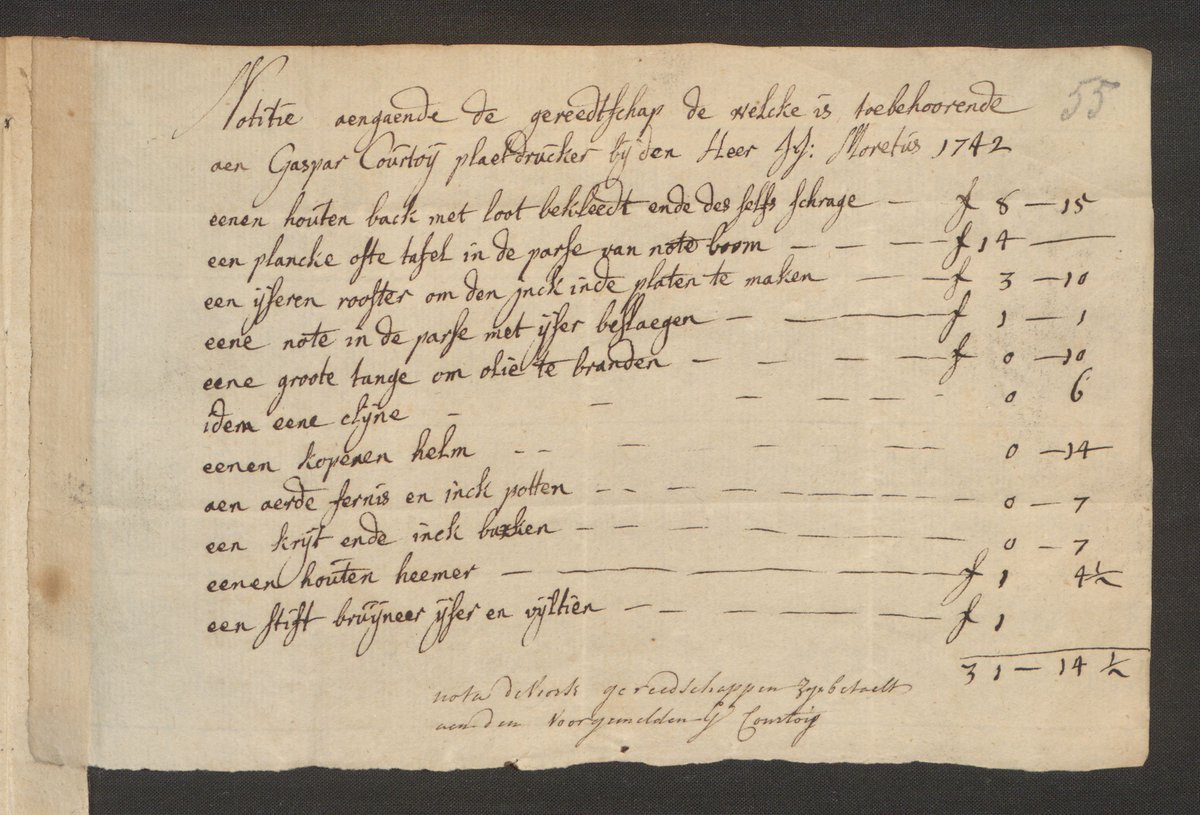 55
Notitie aengaende de gereedtschap de welcke is toebehoorende
aen Gaspar Courtoij plaetdrucker bij den Heer JJ: Moretus 1742
eenen houten back met loot bekleedt ende des selfs schrage — f 8 — 15
een plancke ofte tafel in de parse van note boom — — — f 14 —
een ijseren rooster om den jnck inde platen te maken — — f 3 — 10
eene note in de parse met ijser beslaegen — — f 1 — 1
eene groote tange om olie te branden — — — — f 0 — 10
idem eene clijne — — — — — 0 6
eenen kopenen helm — — — — — 0 — 14
aen aerde fernis en inck potten — — — — — 0 — 7
een krijt ende inck backen — — — — — 0 — 7
eenen houten heemer — — — — f 1 4½
een stift bruijneer ijser en vijltien — — — — f 1
31 — 14 ½
nota gereedschappen zijn betaelt
aen den voorgemelden Sr Courtoij